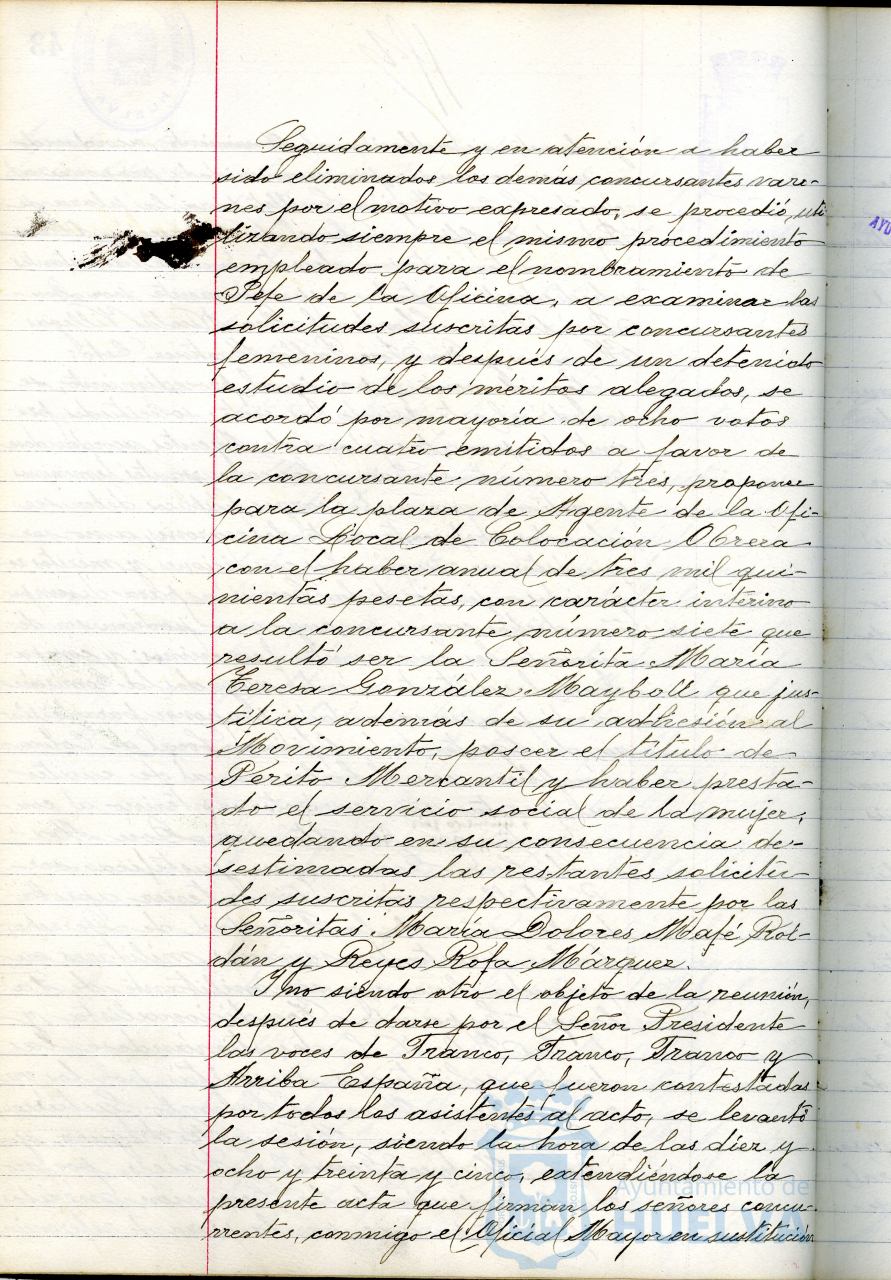 Seguidamente y en atención a haber
sido eliminados los demás concursantes varo-
nes por el motivo expresado, se procedió, uti-
lizando siempre el mismo procedimiento
empleado para el nombramiento de
Jefe de la Oficina, a examinar las
solicitudes suscritas por concursantes
femeninos, y después de un detenido
estudio de los méritos alegados, se
acordó por mayoría de ocho votos
contra cuatro emitidos a favor de
la concursante número tres, proponer
para la plaza de Agente de la Ofi-
cina Local de Colocación Obrera
con el haber anual de tres mil qui-
nientas pesetas, con carácter interino
a la concursante número siete que
resultó ser la Señorita María
Teresa González Mayboll que jus-
tifica, además de su adhesión al
Movimiento, poseer el título de
Perito Mercantil y haber presta-
do el servicio social de la mujer,
quedando en su consecuencia de-
sestimadas las restantes solicitu-
des suscritas respectivamente por las
Señoritas María Dolores Mafé Rol-
dán y Reyes Rofa Márquez.
Y no siendo otro el objeto de la reunión,
después de darse por el Señor Presidente
las voces de Franco, Franco, Franco y
Arriba España, que fueron contestadas
por todos los asistentes al acto, se levantó
la sesión, siendo la hora de las diez y
ocho y treinta y cinco, extendiéndose la
presente acta que firman los señores concu-
rrentes, conmigo el Oficial Mayor en sustitución
Ayuntamiento de
HUELVA
AYU